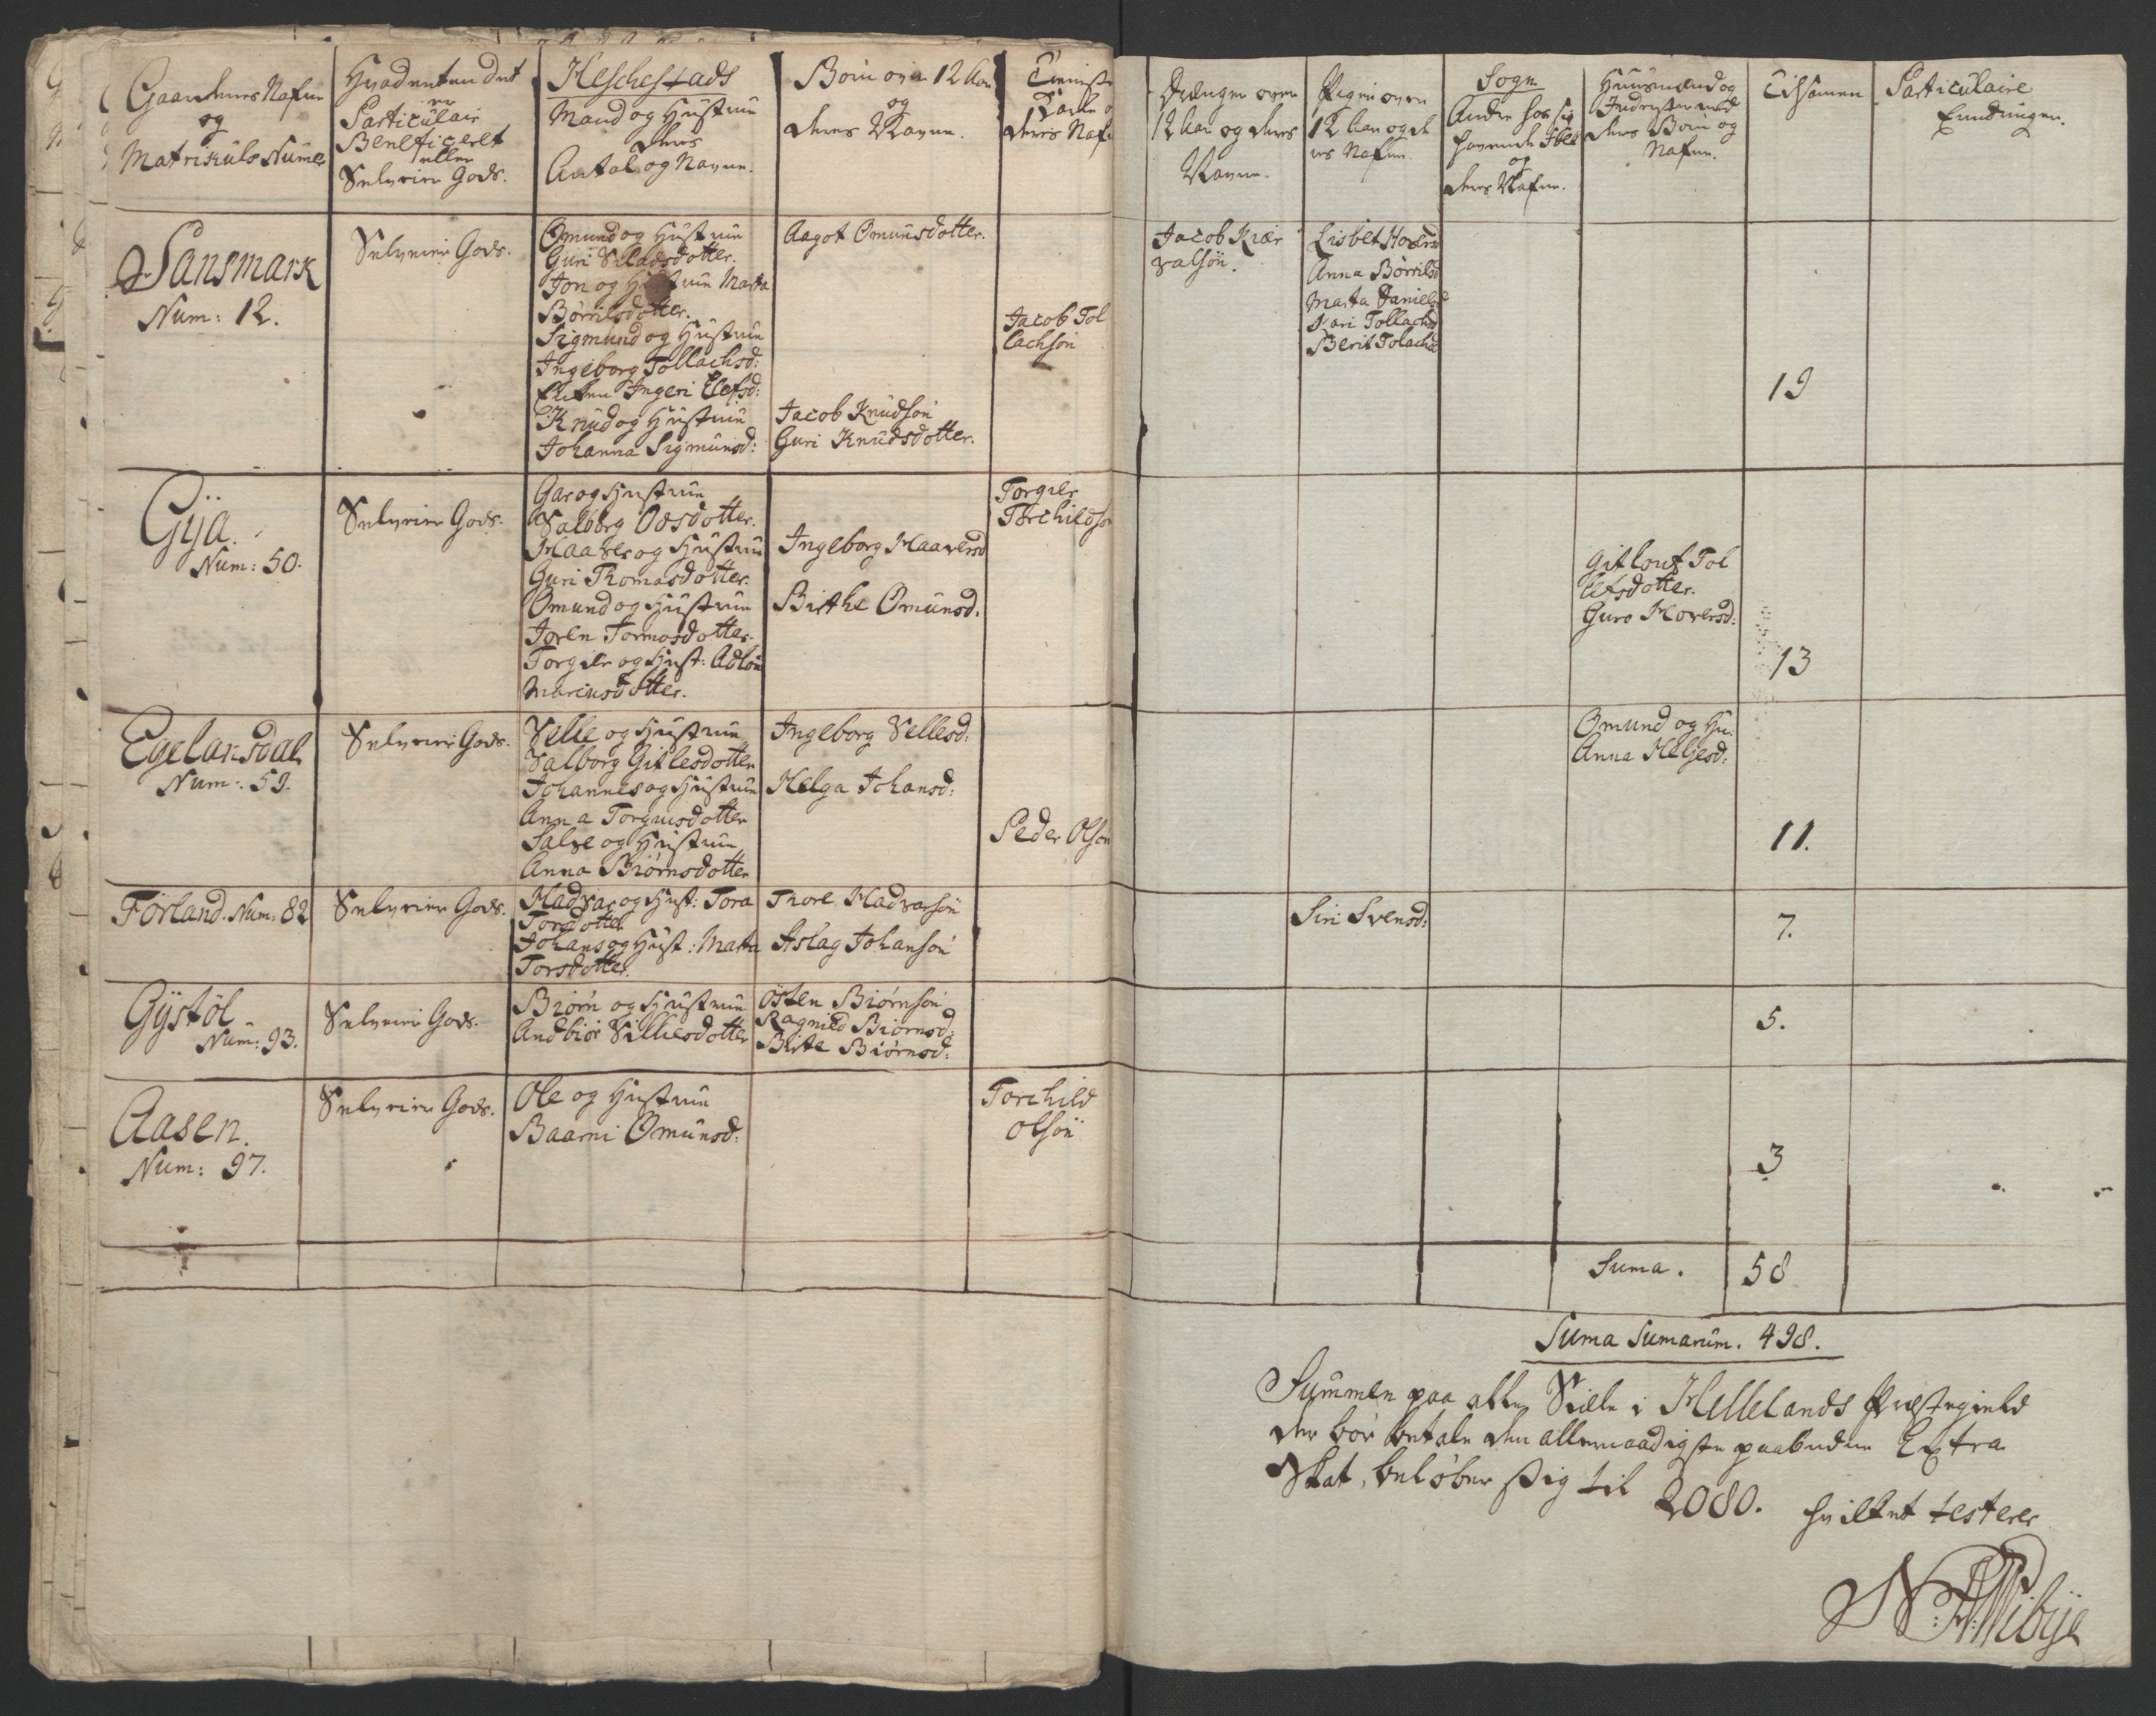 Gaardenes Nafne
og
Matrikuls Numer
Hvad enten det
er
Particulair
Beneficeret
eller
Selveier Gods.
Heschestads
Mand og Hustrue
deres
Antal og Navne.
Børn over 12 Aar
og
deres Navne.
Tieniste
Karle o
deres Nafn
Drenger over
12 Aar og deres
Navne.
Piger over
12 Aar og de
res Nafne.
Sogn
Andre hos sig
havende Folk
og
deres Nafne.
Huusmænd og
Inderster med
deres Børn og
Nafne.
Tilsamen
Particulaire
Erindringer.
Sansmark
Num: 12.
Selveier Gods.
Omund og Hustrue
Guri Siladsdotter.
Jon og Hustrue Marta
Børrilsdotter.
Sigmund og Hustrue
Ingeborg Tollachsd:
Enken Ingeri Elefsd:
Knud og Hustrue
Johanna Sigmunsd:
Aagot Omunsdotter.
Jacob Knudsøn
Guri Knudsdotter.
Jacob Tol
lachsøn
Jacob Kier
valsøn.
Lisbet Hovers
Anna Børrilsd
Marta Danielsd
Kari Tollachsd
Berit Tolachsd
19
Gya.
Num: 50.
Selveier Gods.
Gar og Hustrue
Valborg Odsdotter.
Haaver og Hustrue
Guri Thomasdotter.
Omund og Hustrue
Joren Tormosdotter.
Torgier og Hust: Adlou
Marcusdotter.
Ingeborg Haaversd
Birthe Omunsd.
Torgier
Torchildsøn
Gitlout Tol
lefsdotter.
Guro Hoversd:
13
Egelansdal
Num: 59.
Selveier Gods.
Velle og Hustrue
Valborg Gitlesdotter
Johannes og Hustrue
Anna Torgiusdotter
Salve og Hustrue
Anna Biørnsdotter
Ingeborg Vellesd:
Helga Johansd:
Peder Olsøn
Omund og Hu:
Anna Heljesd:
11.
Førland. Num: 82
Selveier Gods.
Hadvar og Hust: Tora
Torsdotter
Johans og Hust: Marta
Torsdotter.
Thore Hadvarsøn
Aslag Johansøn
Siri Svensd:
7.
Gystøl
Num: 93.
Selveier Gods.
Biørn og Hustrue
Andbiør Villiesdotter
Østen Biørnsøn
Ragnild Biørnsd:
Birte Biørnsd:
5.
Aasen.
Num: 97.
Selveier Gods.
Ole og Hustrue
Baarni Omunsd:
Torchild
Olsøn
3
Suma.
58
Suma Sumarum. 498.
Summen paa alle Siæle i Hellelands Præstegield
der bør betale den allernaadigste paabudne Extra
Skat, beløber sig til 2080. hvilket testerer